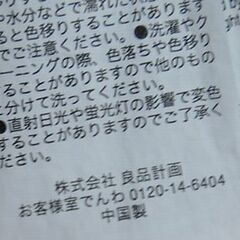 や水分などで濡れた状
すると色移りすることがあります
でご注意ください。●洗濯やク
ーニングの際、色落ちや色移り
ることがありますので他のもの
と分けて洗ってください。
●直射日光や蛍光灯の影響で変色
することがありますのでご了承く
ださい。
株式会社 良品計画
お客様室でんわ 0120-14-6404
中国製